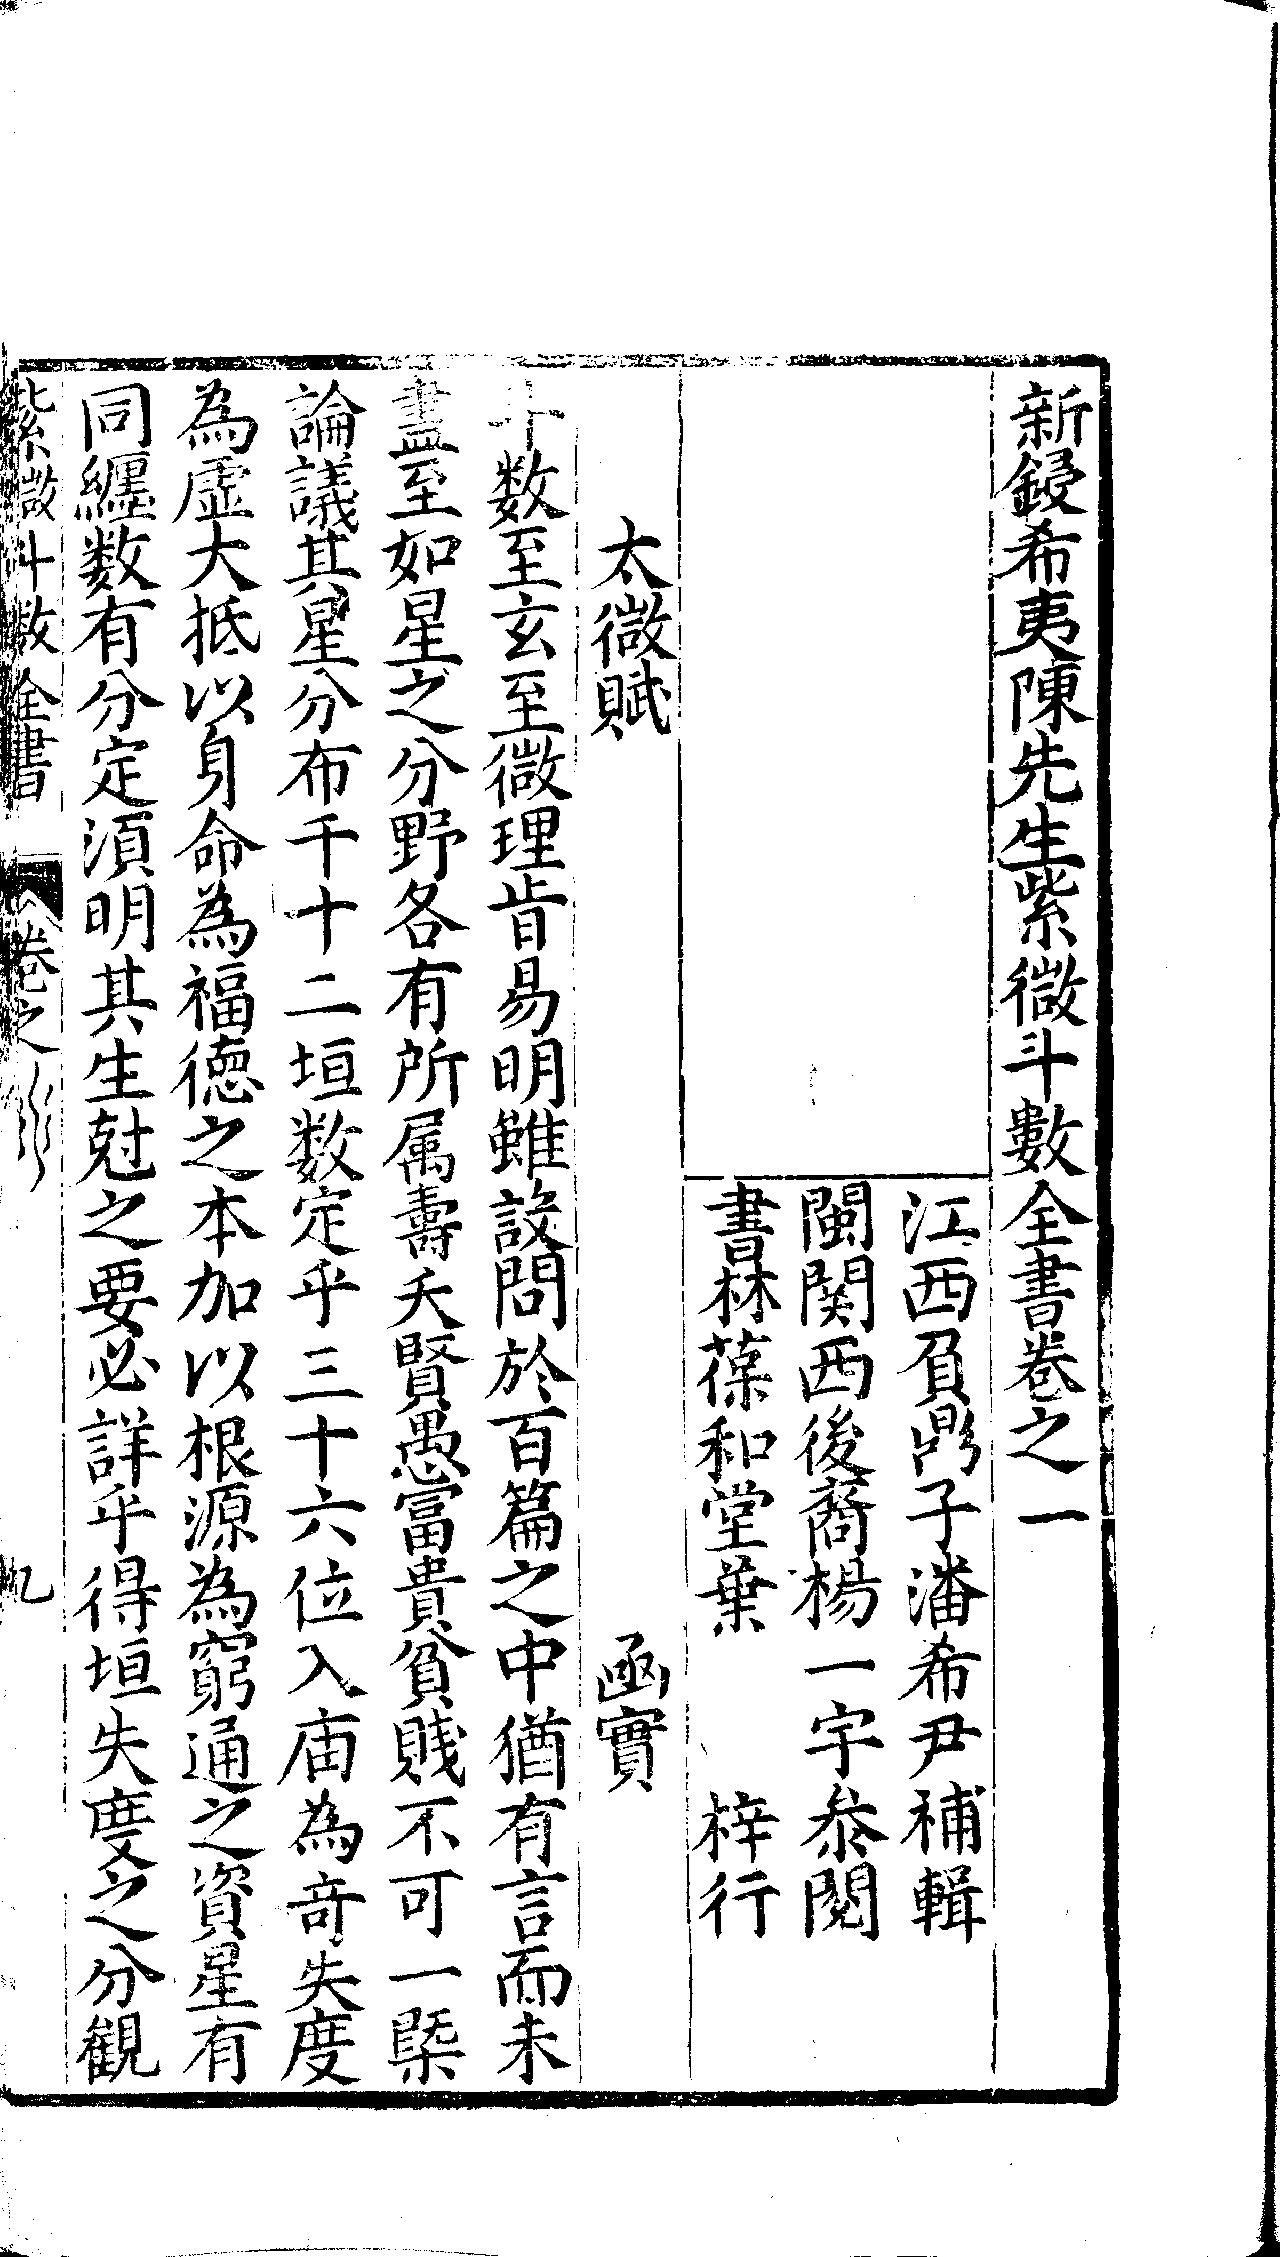 新鋟希夷陳先生紫微斗數全書卷之一
江西負鼎子潘希尹補輯
閩関西後裔楊一宇叅閱
書林葆和堂葉　梓行
太微賦　凾實
斗数至玄至微理㫖易明雖設問於百篇之中猶有言而未
盡至如星之分野各有所属壽夭賢愚富貴貧賎不可一槩
論議其星分布千十二垣数定乎三十六位入庙為竒失度
為虛大抵以身命為福德之本加以根源為窮通之資星有
同纏数有分定湏明其生尅之要必詳乎得垣失度之分觀
紫微斗数全書　卷之　九